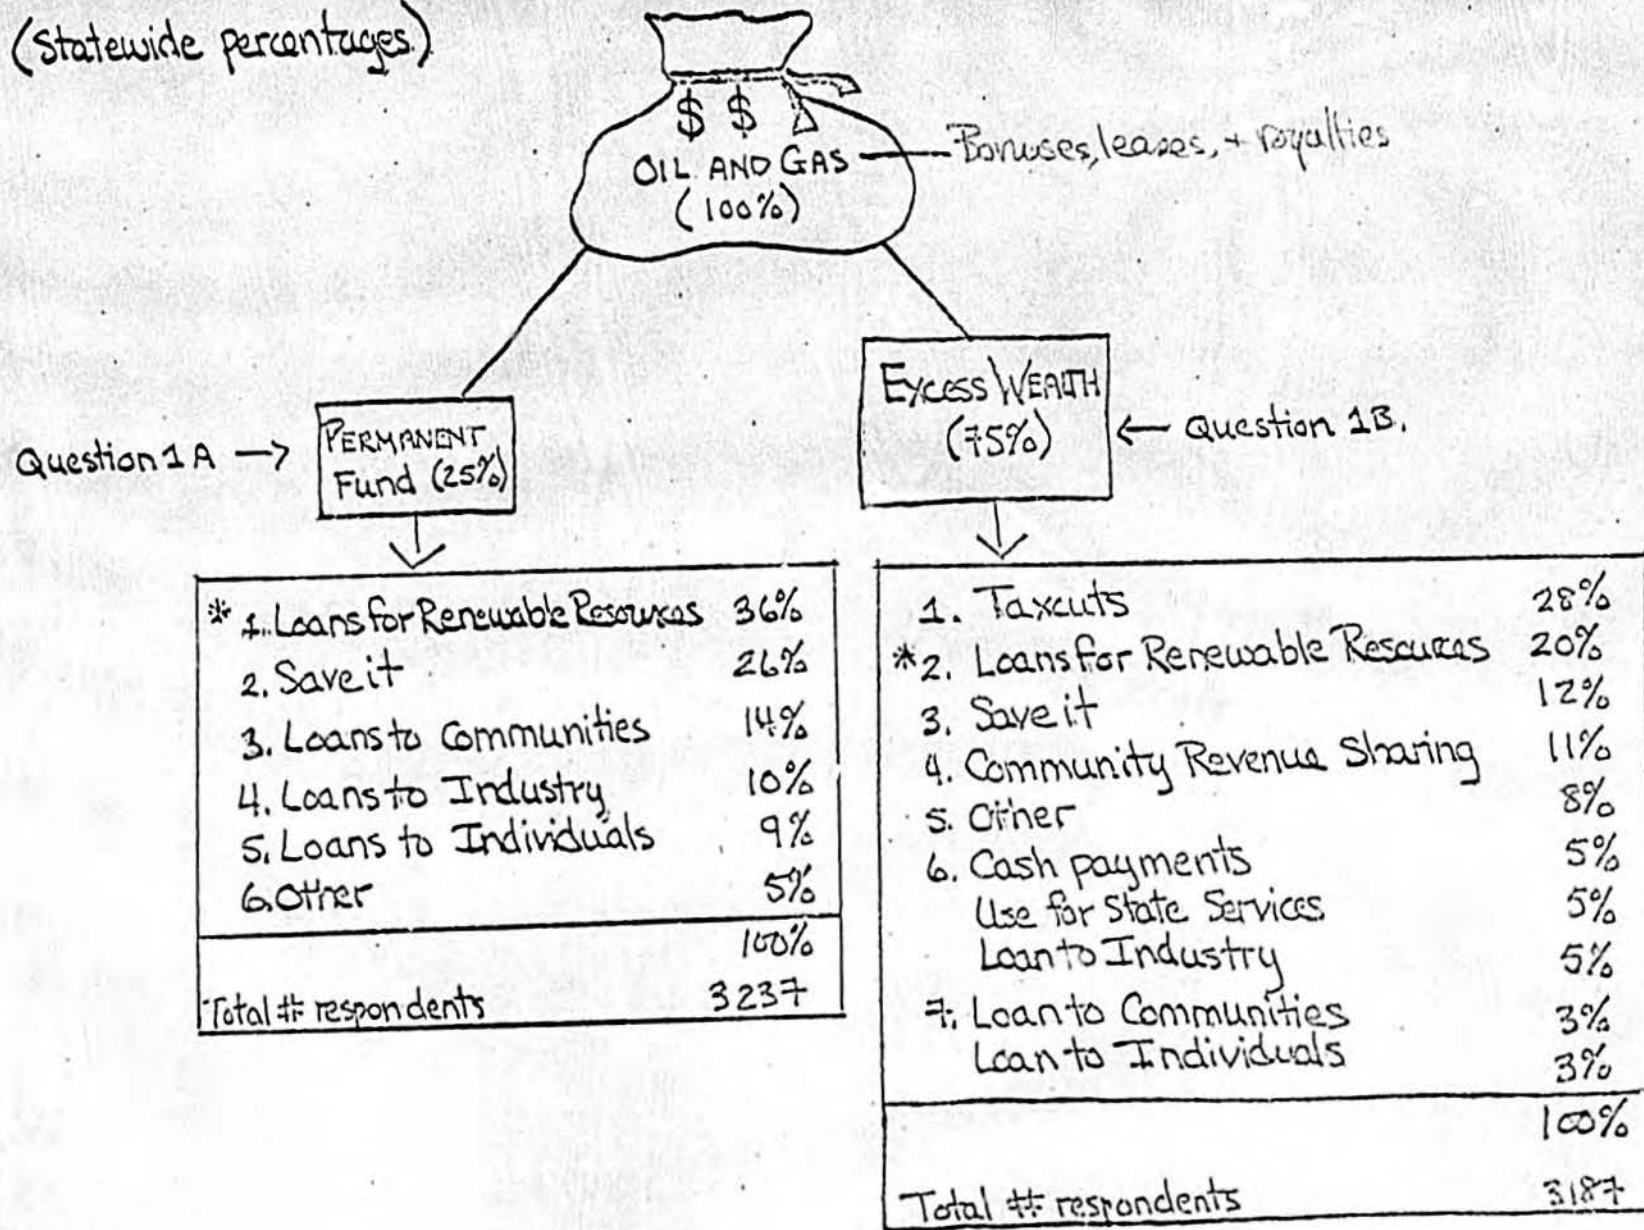 (Statewide percentages)
$ $
OIL AND GAS
(100%)
Bonuses, leases, + royalties
Question 1A →
PERMANENT
Fund (25%)
EXCESS WEALTH
(75%)
← Question 1B.
* 1. Loans for Renewable Resources 36%
2. Save it 26%
3. Loans to Communities 14%
4. Loans to Industry 10%
5. Loans to Individuals 9%
6. Other 5%
100%
Total # respondents 3237
1. Taxcuts 28%
*2. Loans for Renewable Resources 20%
3. Save it 12%
4. Community Revenue Sharing 11%
5. Other 8%
6. Cash payments 5%
Use for State Services 5%
Loan to Industry 5%
7. Loan to Communities 3%
Loan to Individuals 3%
100%
Total # respondents 3187